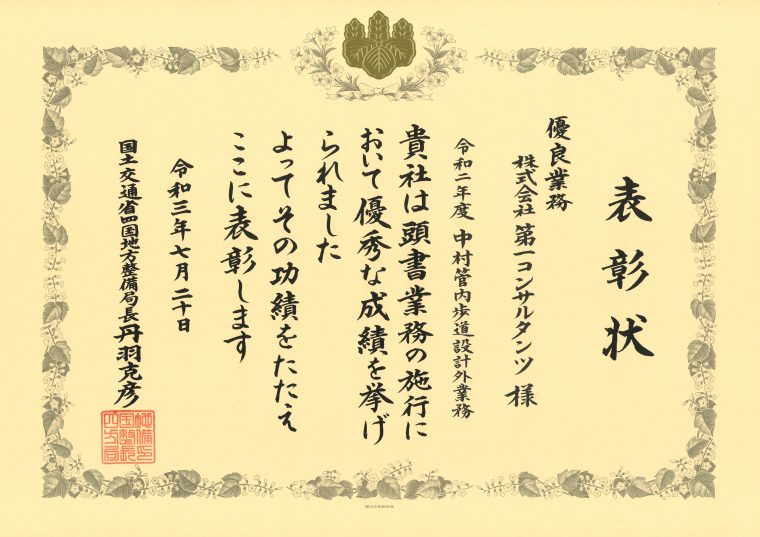 表彰状
優良業務
株式会社 第一コンサルタンツ 様
令和二年度 中村管内歩道設計外業務
貴社は頭書業務の施行に
おいて優秀な成績を挙げ
られました
よってその功績をたたえ
ここに表彰します
令和三年七月二十日
国土交通省四国地方整備局長 丹羽克彦